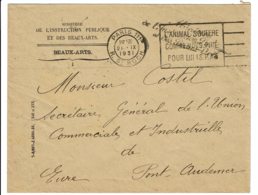 MINISTÈRE
DE L'INSTRUCTION PUBLIQUE
ET DES BEAUX-ARTS.
BEAUX-ARTS.
PARIS
1931
L'ANIMAL SOUFFRE
POUR LUI
Monsieur Costil
Secrétaire Général de l'Union
Commerciale et Industrielle
de
Eure Pont-Audemer